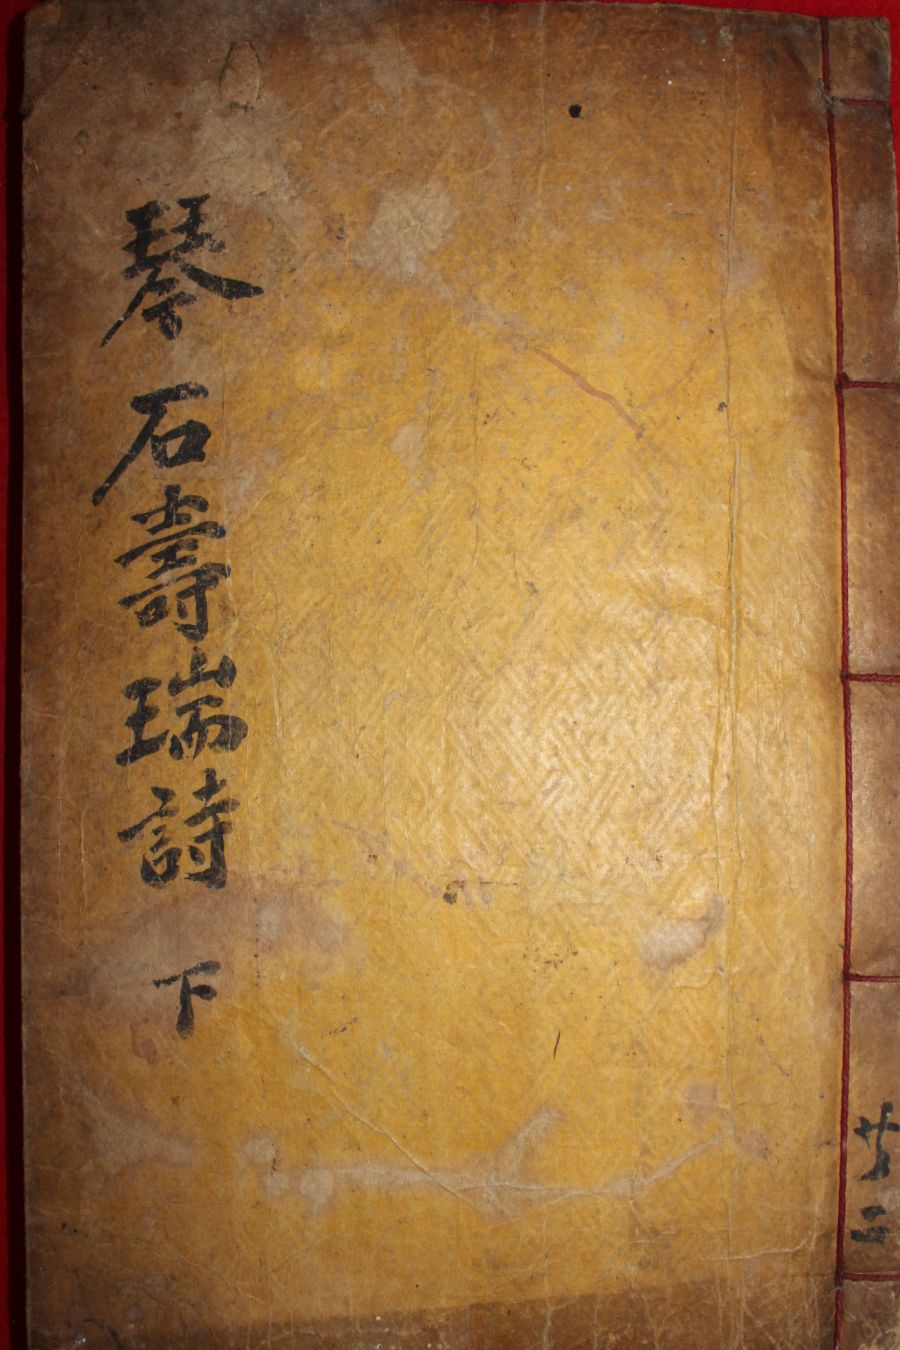 琴石壽瑞詩 下
共二